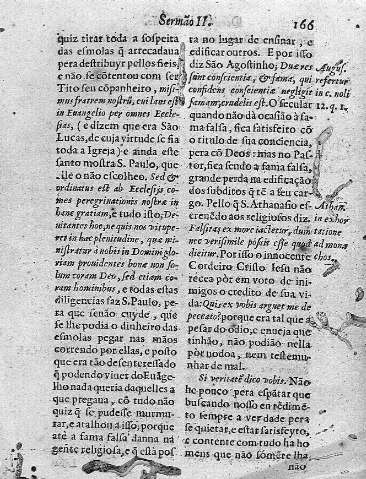 Sermão II.
166
quiz tirar toda a sospeita
das esmolas q̃ arrecadaua
pera destribuyr pellos fieis,
e não se cõtentou com ser
Tito seu cõpanheiro, misi-
mus fratrem nostrũ, cui laus est
in Euangelio per omnes Eccle-
sias, (e dizem que era São
Lucas, de cuja virtude se fia
toda a Igreja) e ainda este
santo mostra S. Paulo, que
elle o não escolheo, Sed &
ordinatus est ab Ecclesijs co-
mes peregrinationis nostræ in
hanc gratiam, e tudo isto, De-
uitantes hoc, ne quis nos vitupe-
ret in hac plenitudine, quæ mi-
nistratur à nobis in Domini glo-
riam prouidentes bona non so-
lum coram Deo, sed etiam co-
ram hominibus, e todas estas
diligencias faz S. Paulo, pe-
ra que senão cuyde, que
se lhe podia o dinheiro das
esmolas pegar nas mãos
correndo por ellas, e posto
que era tão desenteressado
q̃ podendo viuer do Euãge-
lho nada queria daquelles a
que pregaua, cõ tudo não
quiz q̃ se pudesse murmu-
rar, e atalhou a isso, porque
até a fama falsa danna na
gente religiosa, e q̃ está pos
ta no lugar de ensinar, e
edificar outros. E por isso
diz São Agostinho, Duæ res
sunt conscientia, & fama, qui
confidens conscientiæ negligit
famam, crudelis est. O secular
quando não dà ocasião à fa-
ma falsa, fica satisfeito cõ
o titulo de sua conciencia,
pera cõ Deos: mas no Pas-
tor, fica sendo a fama falsa,
grande perda na edificação
dos subditos q̃ tẽ a seu car-
go. Pello q̃ S. Athanasio es-
creuẽdo aos religiosos diz,
Falsitas ex more iactetur, dum
ne verisimile possit esse quod
dicitur. Por isso o innocente
Cordeiro Cristo Iesu não
recea pôr em voto de ini-
migos o credito de sua vi-
da: Quis ex vobis arguet me de
peccato? porque era tal que a
pesar do odio, e enueja que
tinhão, não podião nella
pòr nodoa, nem testemu-
nhar de mal.
Si veritatẽ dico vobis. Não
ho pouco pera espãtar que
buscando nosso entẽdimẽ-
to sempre a verdade pera
se quietar, e estar satisfeyto,
e contente com tudo ha ho
mens que não sòmẽte lha,
não
August.
refertur
in c. nolo
12. q. 1.
Athan.
in exhor
tatione
ad mona
chos.